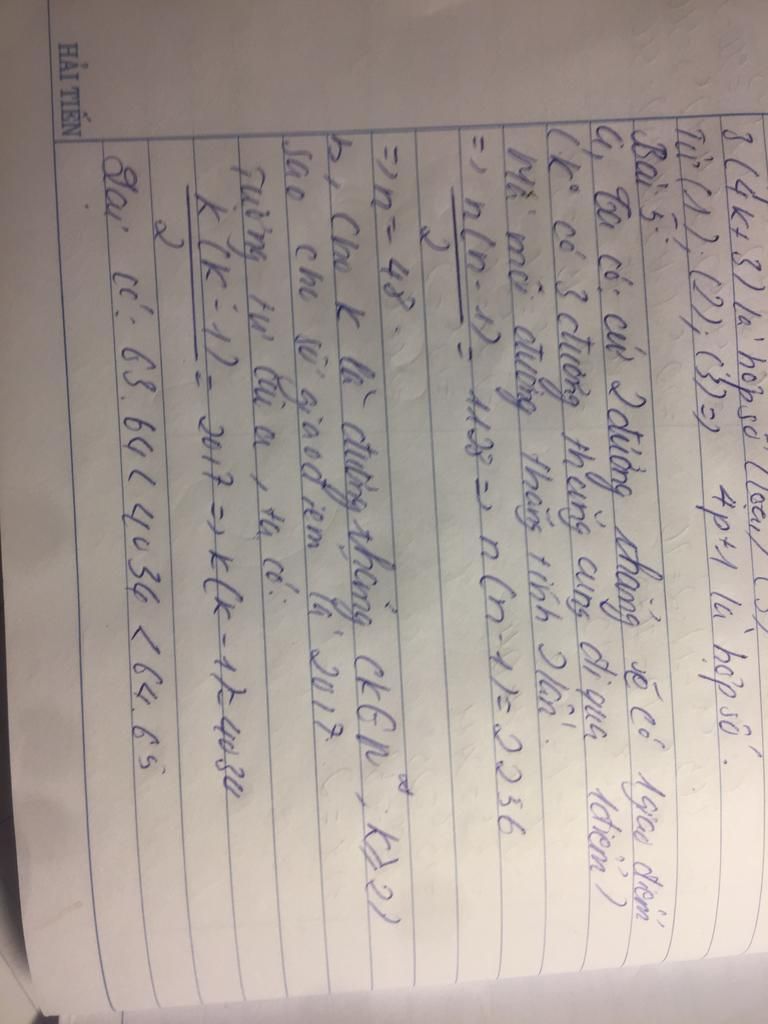 3(4k+3) là hợp số (loại) (3)
Từ (1); (2); (3) => 4p+1 là hợp số.
Bài 5:
a, Ta có: cứ 2 đường thẳng sẽ có 1 giao điểm
(ko có 3 đường thẳng cùng đi qua 1 điểm)
Mà mỗi đường thẳng tính 2 lần.
=> n(n-1) = 1128 => n(n-1) = 2256
2
=> n = 48.
b, Cho k là đường thẳng (k∈N*, k≥2)
sao cho số giao điểm là 2017.
Tương tự câu a, ta có:
k(k-1) = 2017 => k(k-1)=4034
2
Mà có: 63.64 < 4034 < 64.65
HẢI TIẾN